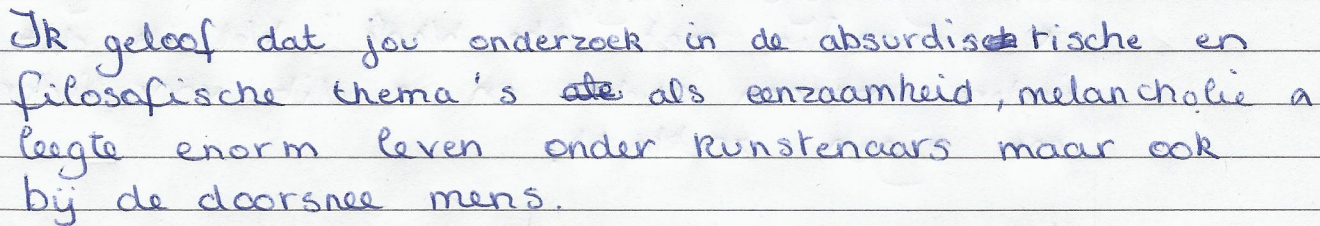 Ik geloof dat jou onderzoek in de absurdistische en
filosofische thema's als eenzaamheid, melancholie
leegte enorm leven onder kunstenaars maar ook
bij de doorsnee mens.